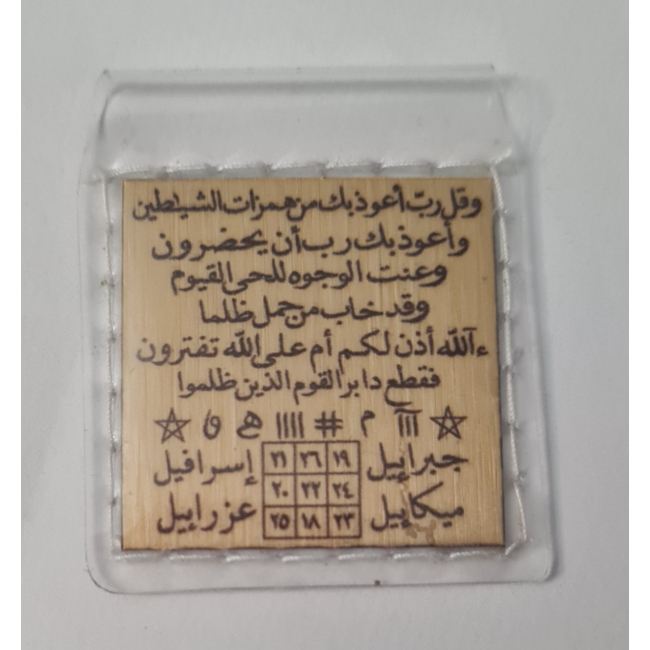 وقل ربّ أعوذ بك من همزات الشيٰطين
وأعوذ بك رب أن يحضرون
وعنت الوجوه للحى القيوم
وقد خاب من حمل ظلما
ءآلله أذن لكم أم على الله تفترون
فقطع دابر القوم الذين ظلموا
م # |||| ھ و
جبرإييل ١٩ ٢٦ ٢١ إسرافيل
٢٤ ٢٢ ٢٠
ميكإييل ٢٣ ١٨ ٢٥ عزرإييل